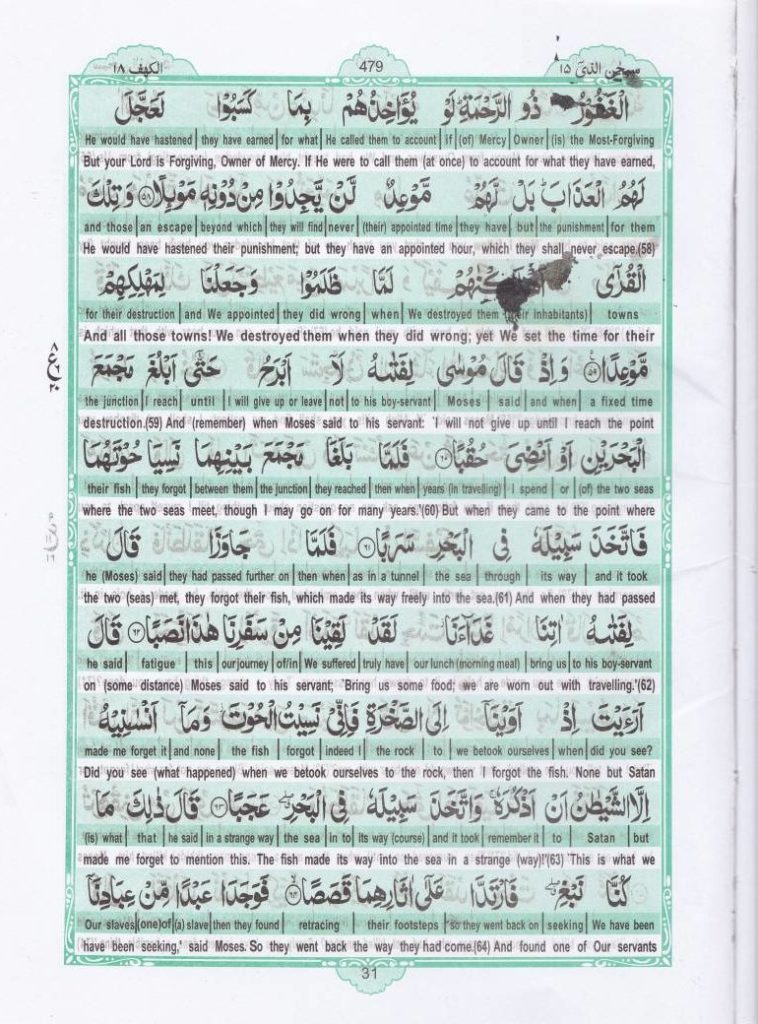 الكهف ١٨ 479 سبحٰن الذیٓ ١٥
الْغَفُوْرُ ذُو الرَّحْمَةِ ؕ لَوْ يُؤَاخِذُهُمْ بِمَا كَسَبُوْا لَعَجَّلَ
He would have hastened | they have earned | for what | He called them to account | if | (of) Mercy | Owner | (is) the Most-Forgiving
But your Lord is Forgiving, Owner of Mercy. If He were to call them (at once) to account for what they have earned,
لَهُمُ الْعَذَابَ ؕ بَلْ لَّهُمْ مَّوْعِدٌ لَّنْ يَّجِدُوْا مِنْ دُوْنِهٖ مَوْئِلًا ﴿٥٨﴾ وَتِلْكَ
and those | an escape | beyond which | they will find | never | (their) appointed time | they have | but | the punishment | for them
He would have hastened their punishment; but they have an appointed hour, which they shall never escape.(58)
الْقُرٰٓى لَمَّا ظَلَمُوْا وَجَعَلْنَا لِمَهْلِكِهِمْ
for their destruction | and We appointed | they did wrong | when | We destroyed them (their inhabitants) | towns
And all those towns! We destroyed them when they did wrong; yet We set the time for their
مَّوْعِدًا ﴿٥٩﴾ وَاِذْ قَالَ مُوْسٰى لِفَتٰىهُ لَاۤ اَبْرَحُ حَتّٰٓى اَبْلُغَ مَجْمَعَ
the junction | I reach | until | I will give up or leave | not | to his boy-servant | Moses | said | and when | a fixed time
destruction.(59) And (remember) when Moses said to his servant: 'I will not give up until I reach the point
الْبَحْرَيْنِ اَوْ اَمْضِىَ حُقُبًا ﴿٦٠﴾ فَلَمَّا بَلَغَا مَجْمَعَ بَيْنِهِمَا نَسِيَا حُوْتَهُمَا
their fish | they forgot | between them | the junction | they reached | then when | years (in travelling) | I spend | or | (of) the two seas
where the two seas meet, though I may go on for many years.'(60) But when they came to the point where
فَاتَّخَذَ سَبِيْلَهٗ فِى الْبَحْرِ سَرَبًا ﴿٦١﴾ فَلَمَّا جَاوَزَا قَالَ
he (Moses) said | they had passed further on | then when | as in a tunnel | the sea | through | its way | and it took
the two (seas) met, they forgot their fish, which made its way freely into the sea.(61) And when they had passed
لِفَتٰىهُ اٰتِنَا غَدَآءَنَا لَقَدْ لَقِيْنَا مِنْ سَفَرِنَا هٰذَا نَصَبًا ﴿٦٢﴾ قَالَ
he said | fatigue | this | our journey | of/in | We suffered | truly have | our lunch (morning meal) | bring us | to his boy-servant
on (some distance) Moses said to his servant; 'Bring us some food; we are worn out with travelling.'(62)
اَرَءَيْتَ اِذْ اَوَيْنَاۤ اِلَى الصَّخْرَةِ فَاِنِّىْ نَسِيْتُ الْحُوْتَ وَمَاۤ اَنْسٰنِيْهُ
made me forget it | and none | the fish | forgot | indeed I | the rock | to | we betook ourselves | when | did you see?
Did you see (what happened) when we betook ourselves to the rock, then I forgot the fish. None but Satan
اِلَّا الشَّيْطٰنُ اَنْ اَذْكُرَهٗ ۚ وَاتَّخَذَ سَبِيْلَهٗ فِى الْبَحْرِ ۖ عَجَبًا ﴿٦٣﴾ قَالَ ذٰلِكَ مَا
(is) what | that | he said | in a strange way | the sea | in to | its way (course) | and it took | remember it | to | Satan | but
made me forget to mention this. The fish made its way into the sea in a strange (way)!'(63) 'This is what we
كُنَّا نَبْغِ ۖ فَارْتَدَّا عَلٰٓى اٰثَارِهِمَا قَصَصًا ﴿٦٤﴾ فَوَجَدَا عَبْدًا مِّنْ عِبَادِنَاۤ
Our slaves | (one)of | (a) slave | then they found | retracing | their footsteps | so they went back on | seeking | We have been
have been seeking,' said Moses. So they went back the way they had come.(64) And found one of Our servants
31